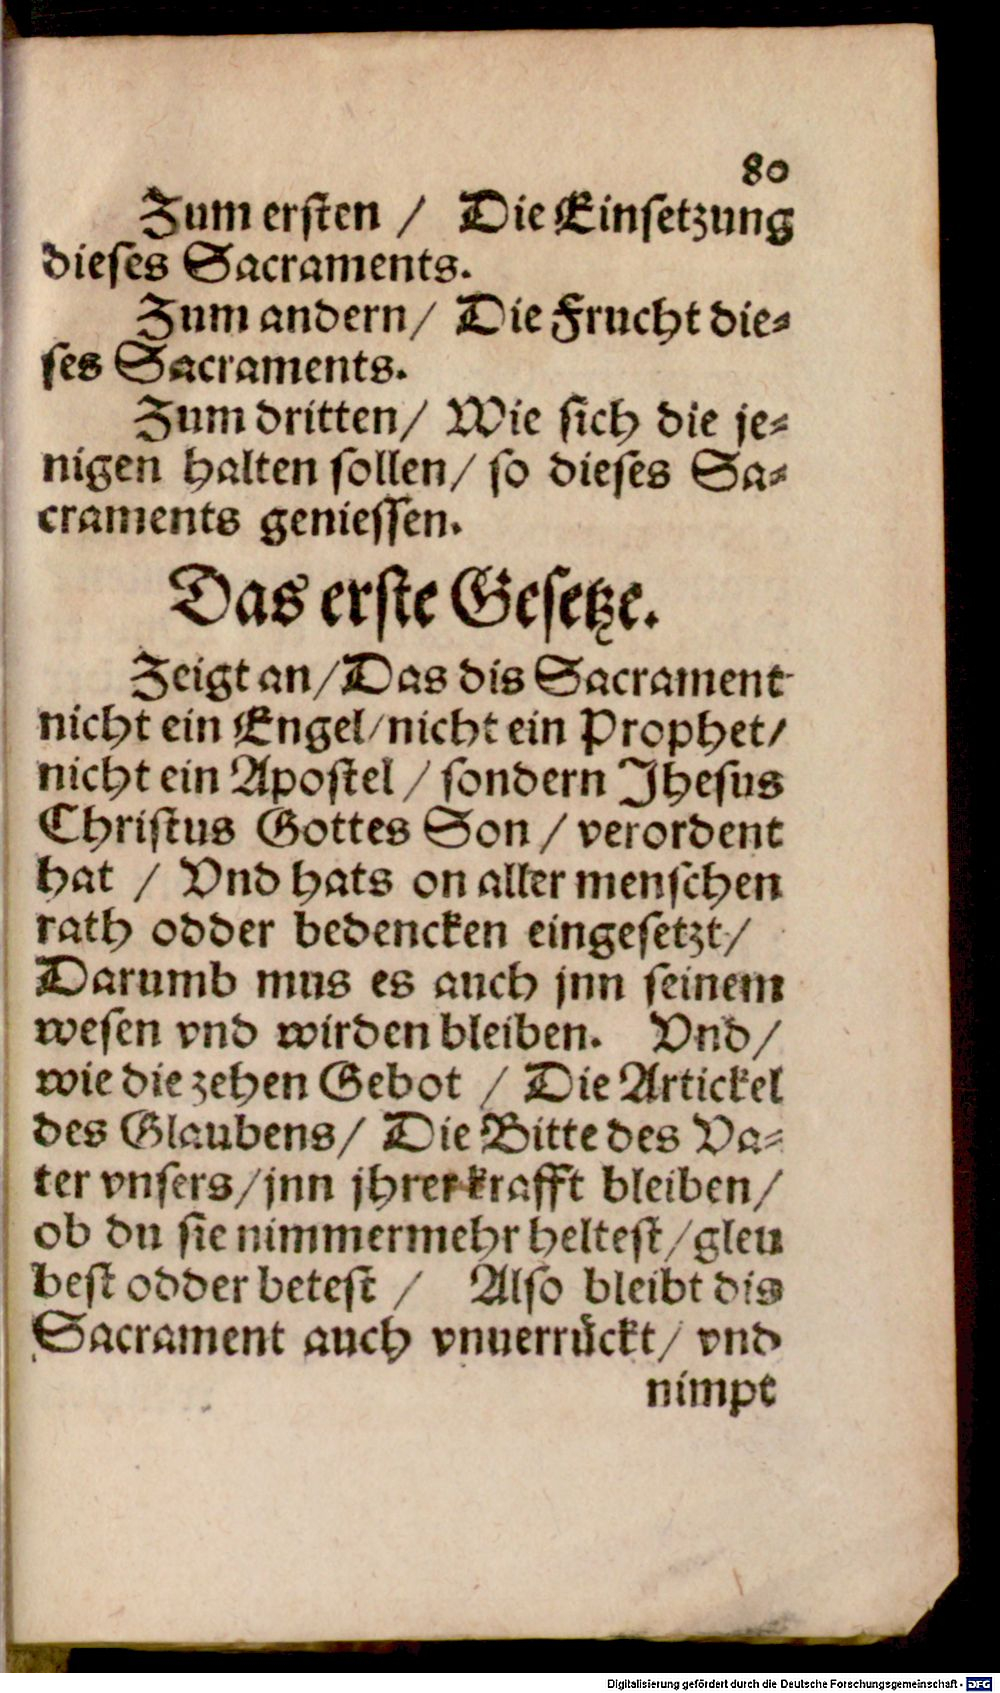 80
Zum ersten / Die Einsetzung
dieses Sacraments.
Zum andern / Die Frucht die⸗
ses Sacraments.
Zum dritten / Wie sich die je⸗
nigen halten sollen / so dieses Sa⸗
craments geniessen.
Das erste Gesetze.
Zeigt an / Das dis Sacrament
nicht ein Engel / nicht ein Prophet /
nicht ein Apostel / sondern Jhesus
Christus Gottes Son / verordent
hat / Vnd hats on aller menschen
rath odder bedencken eingesetzt /
Darumb mus es auch jnn seinem
wesen vnd wirden bleiben. Vnd /
wie die zehen Gebot / Die Artickel
des Glaubens / Die Bitte des Va⸗
ter vnsers / jnn jhrer krafft bleiben /
ob du sie nimmermehr heltest / gleu
best odder betest / Also bleibt dis
Sacrament auch vnuerrückt / vnd
nimpt
Digitalisierung gefördert durch die Deutsche Forschungsgemeinschaft - DFG